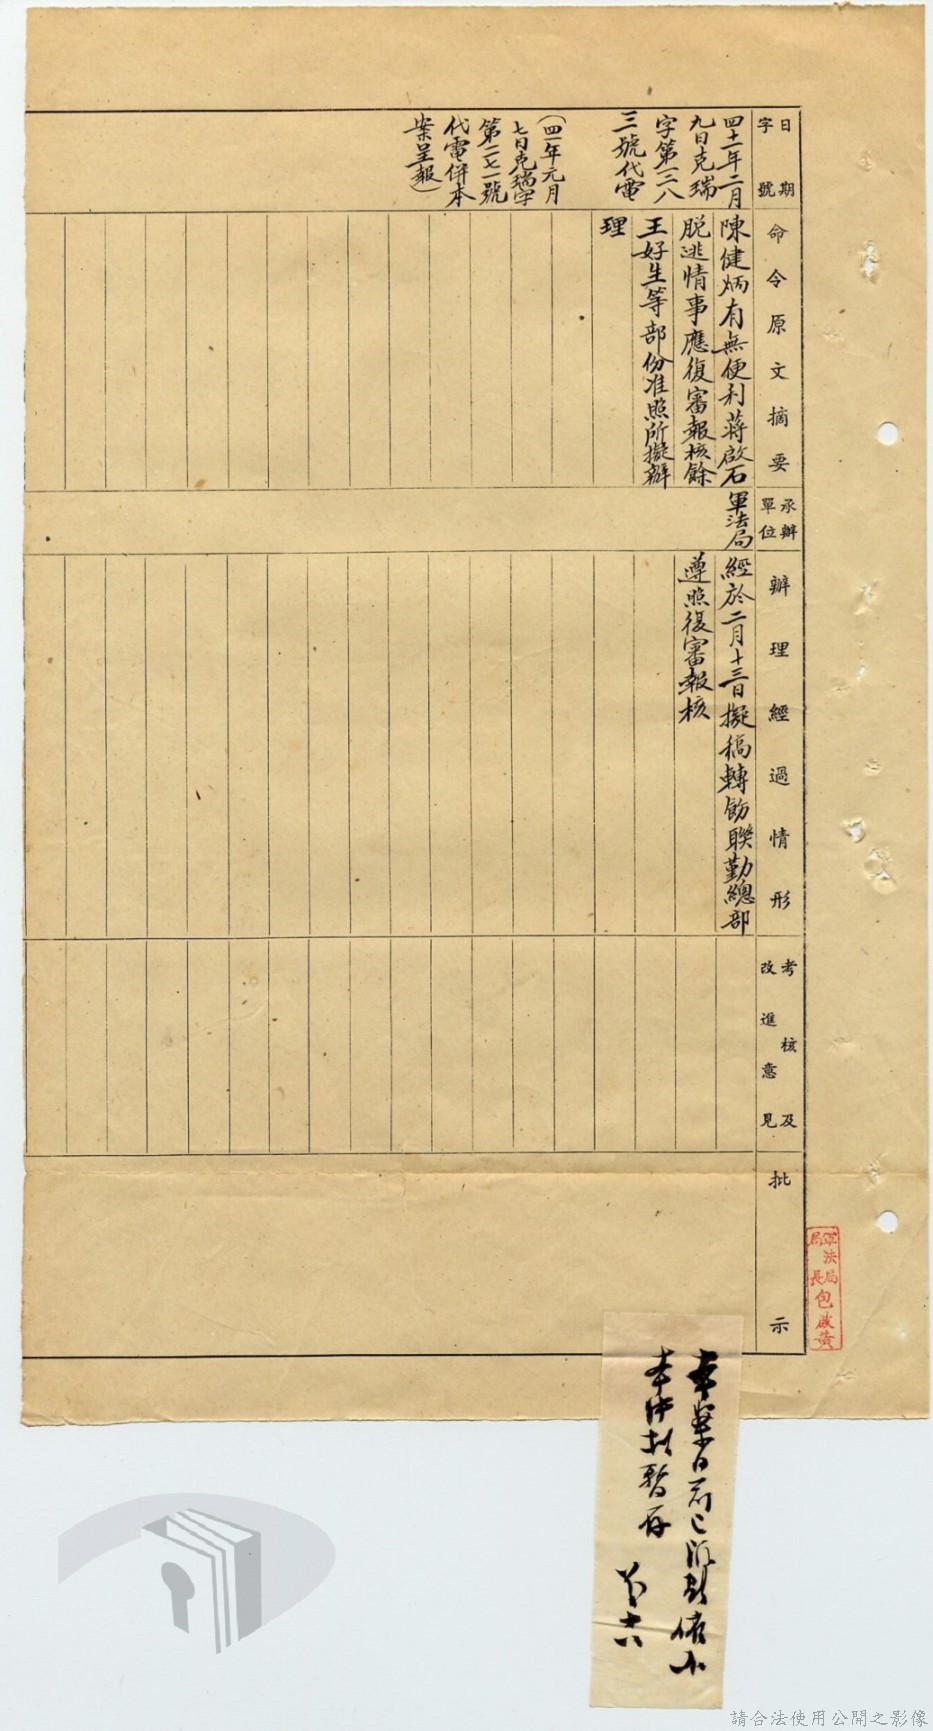 日期
字號
四十一年二月
九日克瑞
字第一二八
三號代電
(四一年元月
七日克瑞字
第二七一號
代電併本
案呈報)
命令原文摘要
陳健炳有無便利蔣啟石
脫逃情事應復審報核餘
王好生等部份准照所擬辦
理
承辦
單位
軍法局
辦理經過情形
經於二月十三日擬稿轉飭聯勤總部
遵照復審報核
考核及
改進意見
批示
軍法局
局長包啟黃
本案日前已
本件擬暫存
請合法使用公開之影像